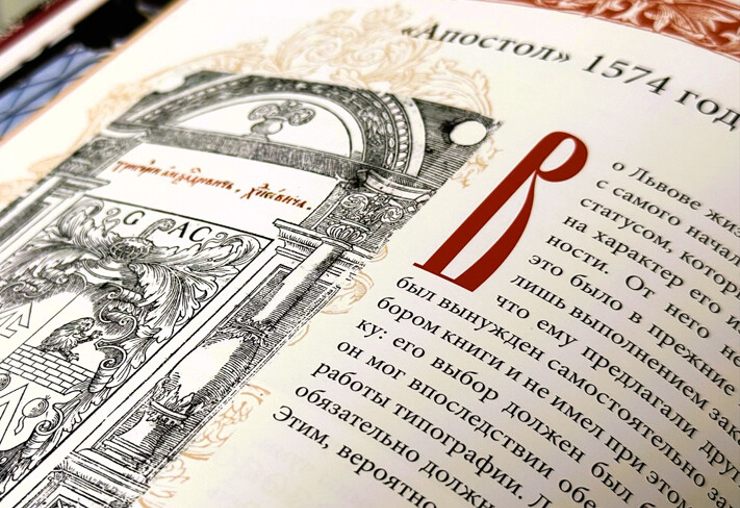 «Апостол» 1574 год
G PAC
Во Львове жиз
с самого начал
статусом, котора
на характер его и
ности. От него не
это было в прежние
лишь выполнением зака
что ему предлагали други
был вынужден самостоятельно за
бором книги и не имел при этом
ку: его выбор должен был б
он мог впоследствии обе
работы типографии. Л
обязательно должн
Этим, вероятно